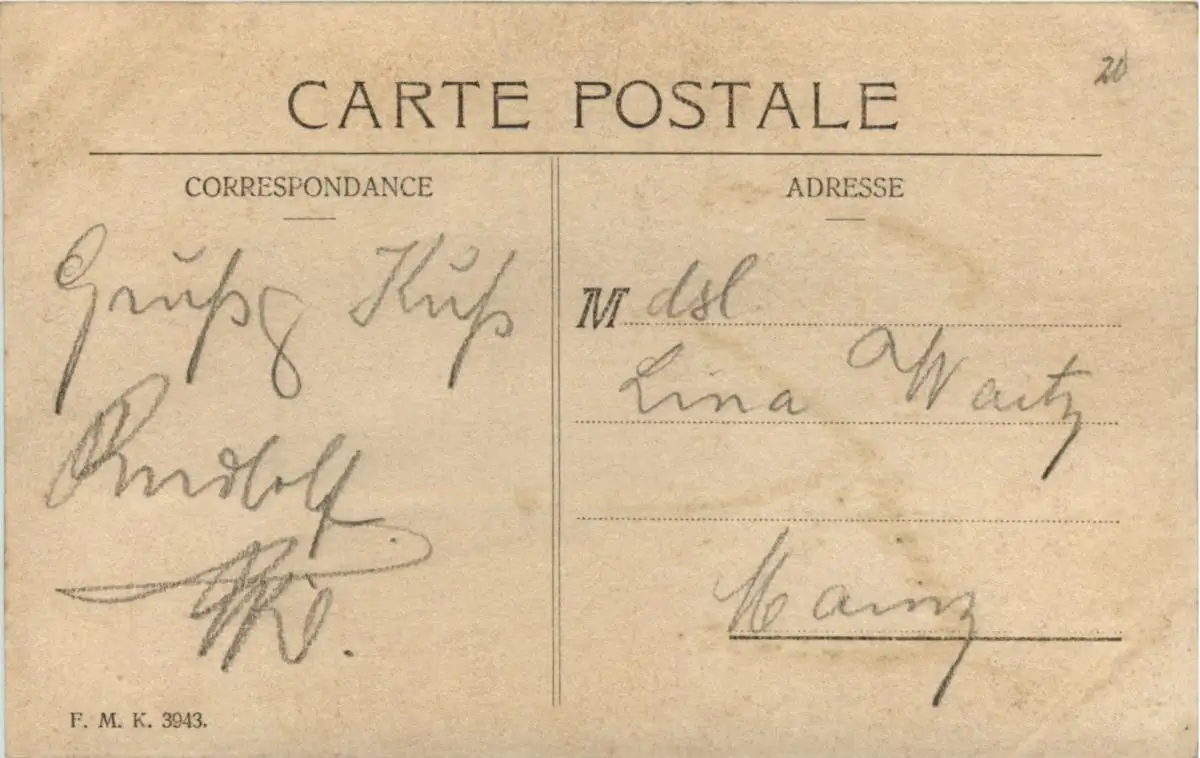 CARTE POSTALE
20
CORRESPONDANCE
ADRESSE
Gruß & Kuß
Rudolf
M dsl
Lina Waitz
Mainz
F. M. K. 3943.